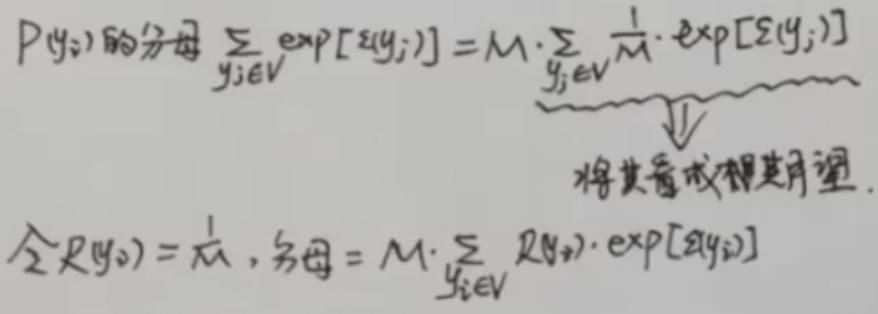 P(yᵢ)的分母 ∑_{yⱼ∈V} exp[ε(yⱼ)] = M·∑_{yⱼ∈V} 1/M · exp[ε(yⱼ)]
将其看成 期望.
令R(yᵢ) = 1/M , 分母 = M·∑_{yᵢ∈V} R(yᵢ)·exp[ε(yᵢ)]